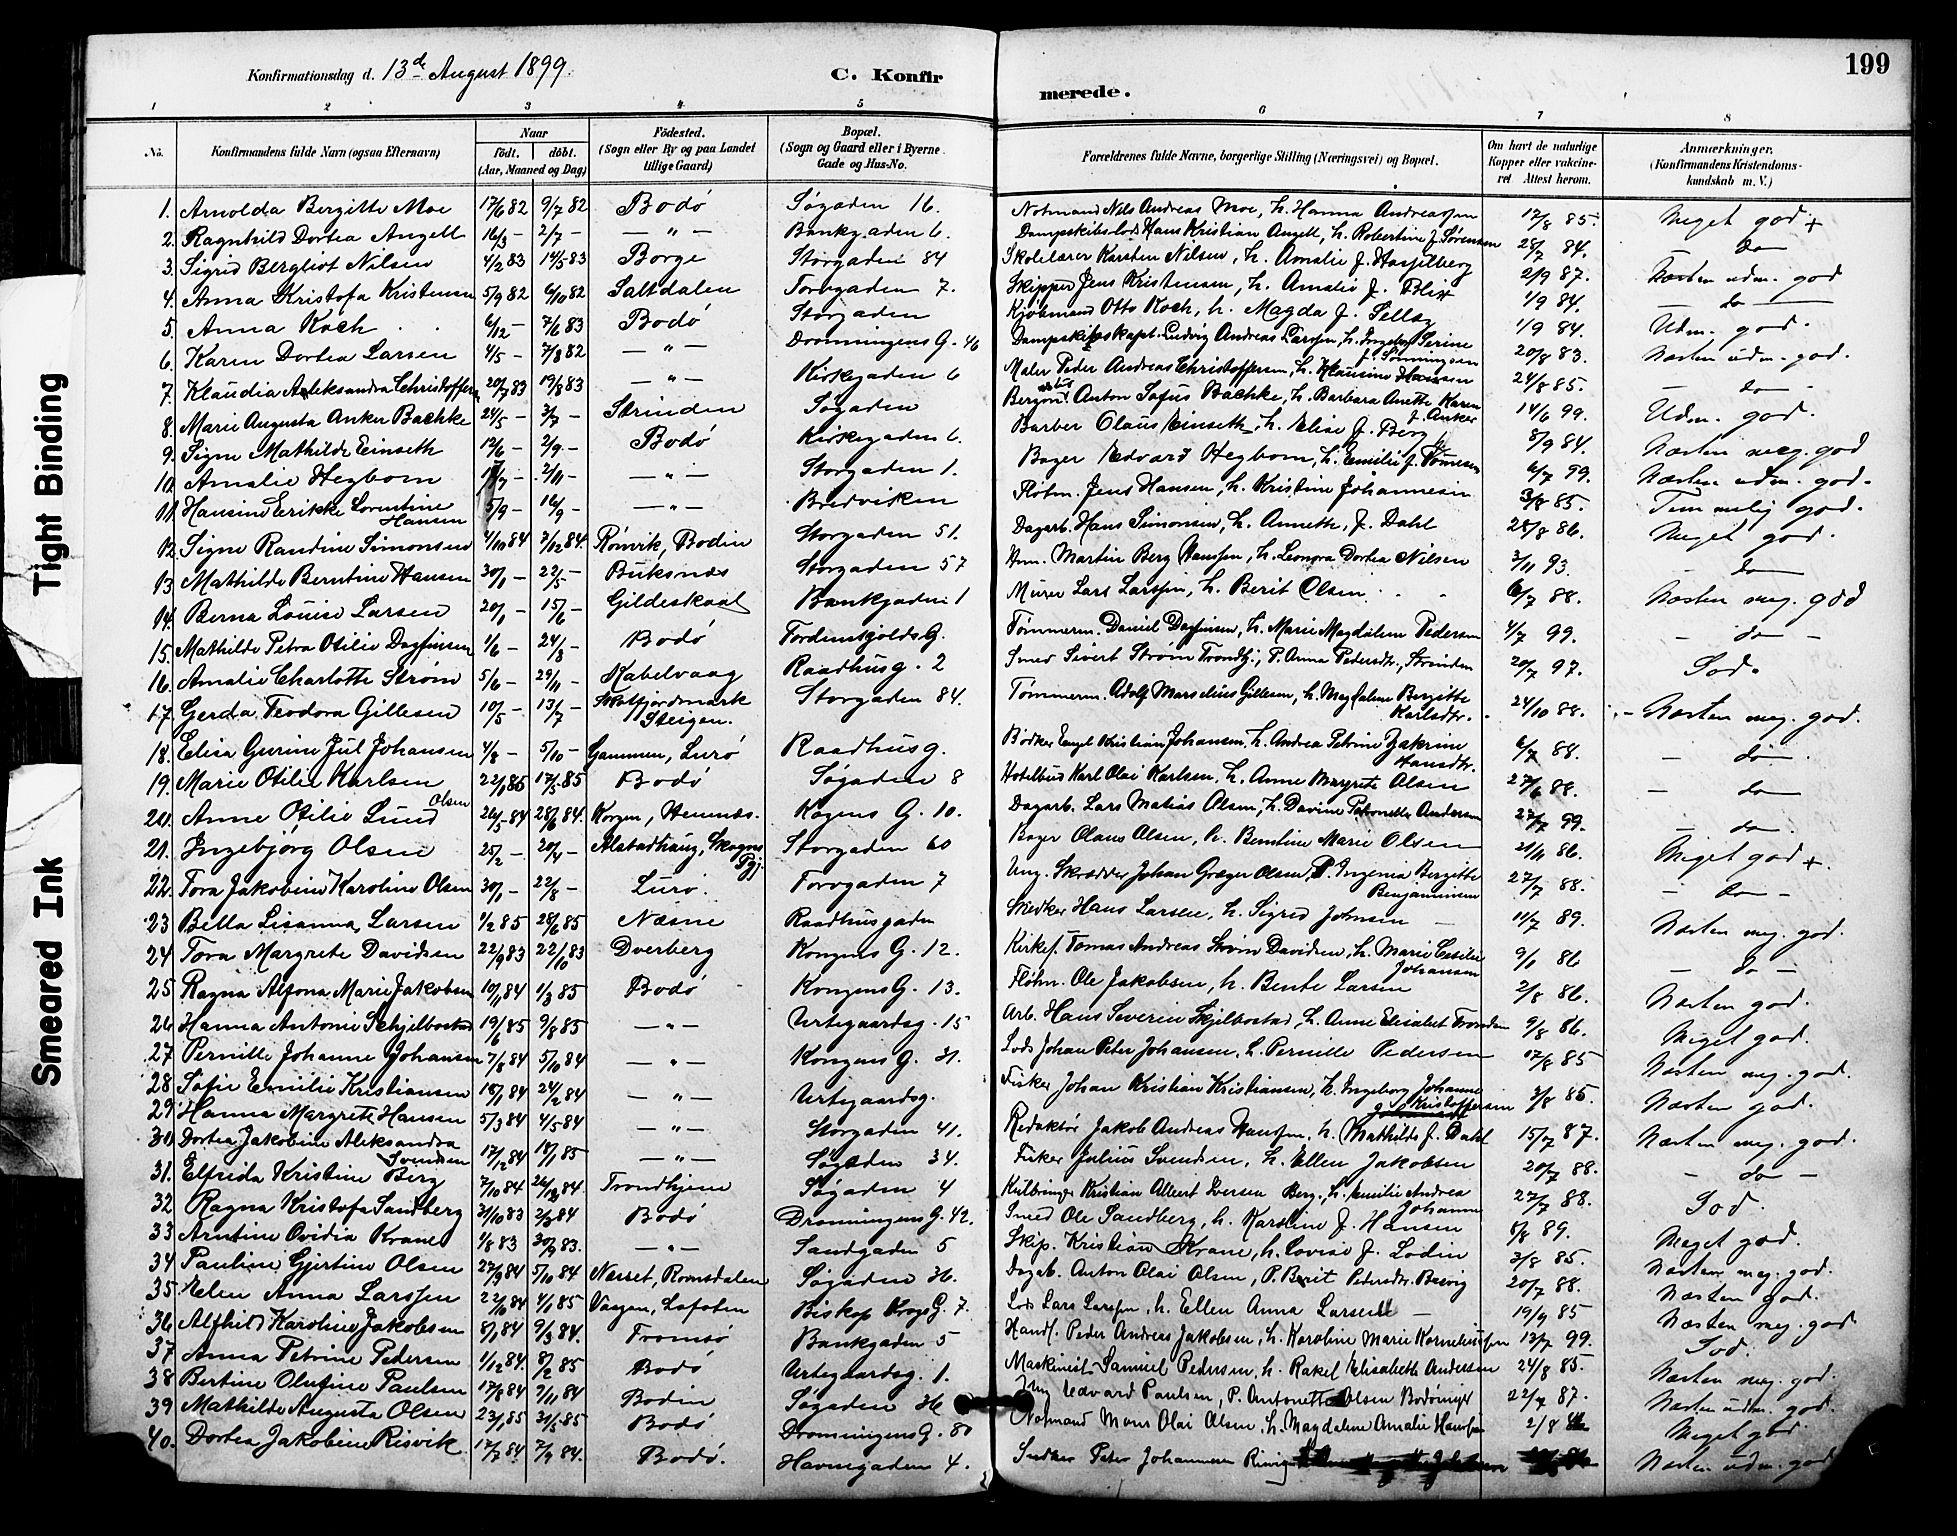 Tight Binding
Smeared Ink
Konfirmationsdag d. 13de August 1899.
C. Konfirmerede.
199
1 2 3 4 5 6 7 8
No.
Konfirmandens fulde Navn (ogsaa Efternavn)
Naar
födt. döbt.
(Aar, Maaned og Dag)
Födested.
(Sogn eller By og paa Landet
tillige Gaard)
Bopæl.
(Sogn og Gaard eller i Byerne
Gade og Hus-No.
Forældrenes fulde Navne, borgerlige Stilling (Næringsvei) og Bopæl.
Om havt de naturlige
Kopper eller vakcineret
Attest herom.
Anmærkninger,
(Konfirmandens Kristendomskundskab
m. V.)
1. Arnolda Bergitte Moe 17/6 82 9/7 82 Bodö Søgaden 16. Notmand Nils Andreas Moe, h. Hanna Andreassen 17/8 85. Meget god +
2. Ragnhild Dortea Angell 16/3 — 2/7 — — " — Bankgaden 6. Dampskibslods Hans Kristian Angell, h. Robertine f. Sørensen 28/7 84. do
3. Sigrid Bergliot Nilsen 4/2 83 14/5 83 Borge Storgaden 84 Skolelærer Karsten Nilsen, h. Amalie f. 2/9 87. Næsten udm. god
4. Anna Kristofa Kristensen 5/9 82 6/10 82 Saltdalen Torvgaden 7. Skipper Jens Kristensen, h. Amalie f. Blix 1/9 84. — do —
5. Anna Koch 6/12 — 7/6 83 Bodö Storgaden Kjøbmand Otto Koch, h. Magda f. 1/9 84. Udm. god.
6. Karen Dortea Larsen 4/5 — 7/8 82 — " — Dronningens G. 46 Dampskibskapt. Ludvig Andreas Larsen, h. Serine f. 20/8 83. Næsten udm. god.
7. Klaudia Aleksandra Christoffersen 20/7 83 19/8 83 — " — Kirkegaden 6 Maler Peder Andreas Christoffersen, h. Klausine Hansen 24/8 85. — do —
8. Marie Augusta Anker Bachke 24/5 — 3/7 — Strinden Søgaden Anton Sofus Bachke, h. Barbara Anette Karen f. Anker 14/6 99. Udm. god.
9. Signe Mathilde Einseth 12/6 — 2/9 — Bodö Kirkegaden 6. Barber Olaus Einseth, h. Elise f. Berg 8/9 84. Næsten meg. god
10. Amalie Hegbom 2/11 — — " — Storgaden 1. Bager Edvard Hegbom, h. Emilie f. 6/7 99. Næsten udm. god.
11. Hansine Erikke Lorentine Hansen 5/9 — 16/9 — — " — Bredviken Jens Hansen, h. Kristine Johannesen 3/8 85. Temmelig god.
12. Signe Randine Simonsen 4/10 84 7/12 84. Rönvik, Bodin Storgaden 51. Dagarb. Hans Simonsen, h. Anneth, f. Dahl 28/8 86. Meget god.
13 Mathilde Berntine Hansen 30/1 — 22/5 — Buksnæs Storgaden 57 Martin Berg Hanssen, h. Leonora Dortea Nilsen 3/11 93. — do —
14. Berna Louise Larsen 20/1 — 15/6 Gildeskaal Bankgaden 1 Murer Lars Larsen, h. Berit Olsen 6/7 88. Næsten meg. god
15. Mathilde Petra Otilie Dagfinsen 1/6 — 24/8 — Bodö Tordenskjolds G. Tømmerm. Daniel Dagfinsen, h. Marie Magdalene Pedersen 4/7 99. — do —
16. Amalie Charlotte Strøm 5/6 — 29/11 — Kabelvaag Raadhusg. 2 Smed Sivert Strøm Trondhj., P. Anna Pedersdr., Strinden 20/7 97. God.
17. Gerda Teodora Gillesen 10/5 — 13/7 — Steigen. Storgaden 84. Tømmerm. Adolf Marselius Gillesen, h. Magdalene Bergitte Karlsdtr. 24/10 88. Næsten meg. god.
18. Elisa Gurine Jul Johansen 4/8 — 5/10 — Lurö Raadhusg. Bödker Engel Kristian Johansen, h. Andrea Petrine Hansdtr. 6/7 88. — do —
19. Marie Otilie Karlsen 22/1 85 17/5 85 Bodö Søgaden 8 Hotelbud Karl Olai Karlsen, h. Anne Margrete Olsen 27/6 88. — do
20. Anne Otilie Lund Olsen 26/5 84 28/6 84. Korgen, Hemnæs. Kogens G. 10. Dagarb. Lars Matias Olsen, h. Davine Petronelle Andersen 27/7 99. — do —
21. Ingebjörg Olsen 25/2 — 20/4 — Alstadhaug, Skogns Pgj. Storgaden 60 Bager Olaus Olsen, h. Berntine Marie Olsen 21/11 86. Meget god +
22. Tora Jakobine Karoline Olsen 30/1 — 22/8 — Lurö. Torvgaden 7 Ung. Skrædder Johan Olsen, P. Bergitte Benjaminsen 27/7 88. — do —
23 Bella Lisanna Larsen 1/2 85 28/6 85 Næsne Raadhusgaden Hans Larsen, h. Sigrid Johnsen — 11/7 89. Næsten meg. god.
24 Tora Margrete Davidsen 22/9 83 22/10 83 Dverberg Kongens G. 12. Tomas Andreas Davidsen, h. Marie Johansen 9/1 86 — do —
25 Ragna Alfona Marie Jakobsen 10/1 84 1/3 85 Bodö Kongens G. 13. Ole Jakobsen, h. Bente Larsen 2/8 86. Næsten god.
26 Hanna Antonie Schjelbostad 19/6 85 9/8 85 — " — Urtegaardsg. 15 Arb. Hans Severin Skjelbostad, h. Anne Elisabet 9/8 86. Meget god.
27 Pernille Johanne Johansen 7/8 84 5/10 84 — " — Kongens G. 31. Lods Johan Peter Johansen, h. Pernille Pedersen 17/8 85 Næsten meg. god.
28 Sofie Emilie Kristiansen 18/1 84 24/2 84 — " — Urtegaardsg. Fisker Johan Kristian Kristiansen, h. Ingeborg Johanne Kristoffersen 3/8 85. Næsten god.
29. Hanna Margrete Hansen 5/3 84 4/5 84 — " — Storgaden 41. Redaktör Jakob Andreas Hanssen, h. Mathilde f. Dahl 15/7 87. Næsten meg. god.
30. Dortea Jakobine Aleksandra Svendsen 17/12 84 18/1 85 — " — Søgaden 34. Fisker Julius Svendsen, h. Ellen Jakobsen 20/7 88. — do —
31. Elfrida Kristine Berg 7/10 84 84. Trondhjem Søgaden 4 Kristian Albert Iversen Berg, h. Emilie Andrea Johanne 27/7 88. God.
32 Ragna Kristofa Sandberg 31/10 83 2/3 84 Bodö Dronningens G. 42. Smed Ole Sandberg, h. Karoline f. Hansen 8/8 89. Meget god.
33 Arntine Ovidia Krane 1/8 83 30/9 83. — " — Sandgaden 5 Skip. Kristian Krane, h. Lovise f. Lodin 3/8 85. Næsten meg. god.
34 Pauline Gjertine Olsen 27/9 84 5/10 84 Næsset, Romsdalen Søgaden 36. Dagab. Anton Olai Olsen, P. Berit Pedersdtr. 20/7 88. Næsten god.
35 Elen Anna Larssen 22/6 84 4/1 85 Vaagan, Lofoten Biskop Krogs G. 7. Lods Lars Larssen, h. Ellen Anna Larsen — 19/9 85 Næsten meg. god
36 Alfhild Karoline Jakobsen 8/1 84 9/3 84. Tromsö Bankgaden 5 Handl. Peder Andreas Jakobsen, h. Karoline Marie Korneliussen 13/7 99. God.
37 Anna Petrine Pedersen 1/12 84. 8/2 85 Bodö Urtegaardsg. 1. Maskinist Samuel Pedersen, h. Rakel Elisabeth Andersen 24/8 85. Næsten meg. god.
38 Bertine Olufine Paulsen 17/8 84 2/11 84 Bodin Søgaden 36 Ung Edvard Paulsen, P. Antonette Olsen 22/7 87. Næsten udm. god.
39 Mathilde Augusta Olsen 23/1 85 31/5 85 Bodö Dronningens G. 80 Notmand Mons Olai Olsen, h. Magdalene Amalie Hanssen 2/8 Meget god.
40. Dortea Jakobine Risvik 17/7 84 7/9 84. Bodö. Havnegaden 4. Peter Johannessen Næsten udm. god